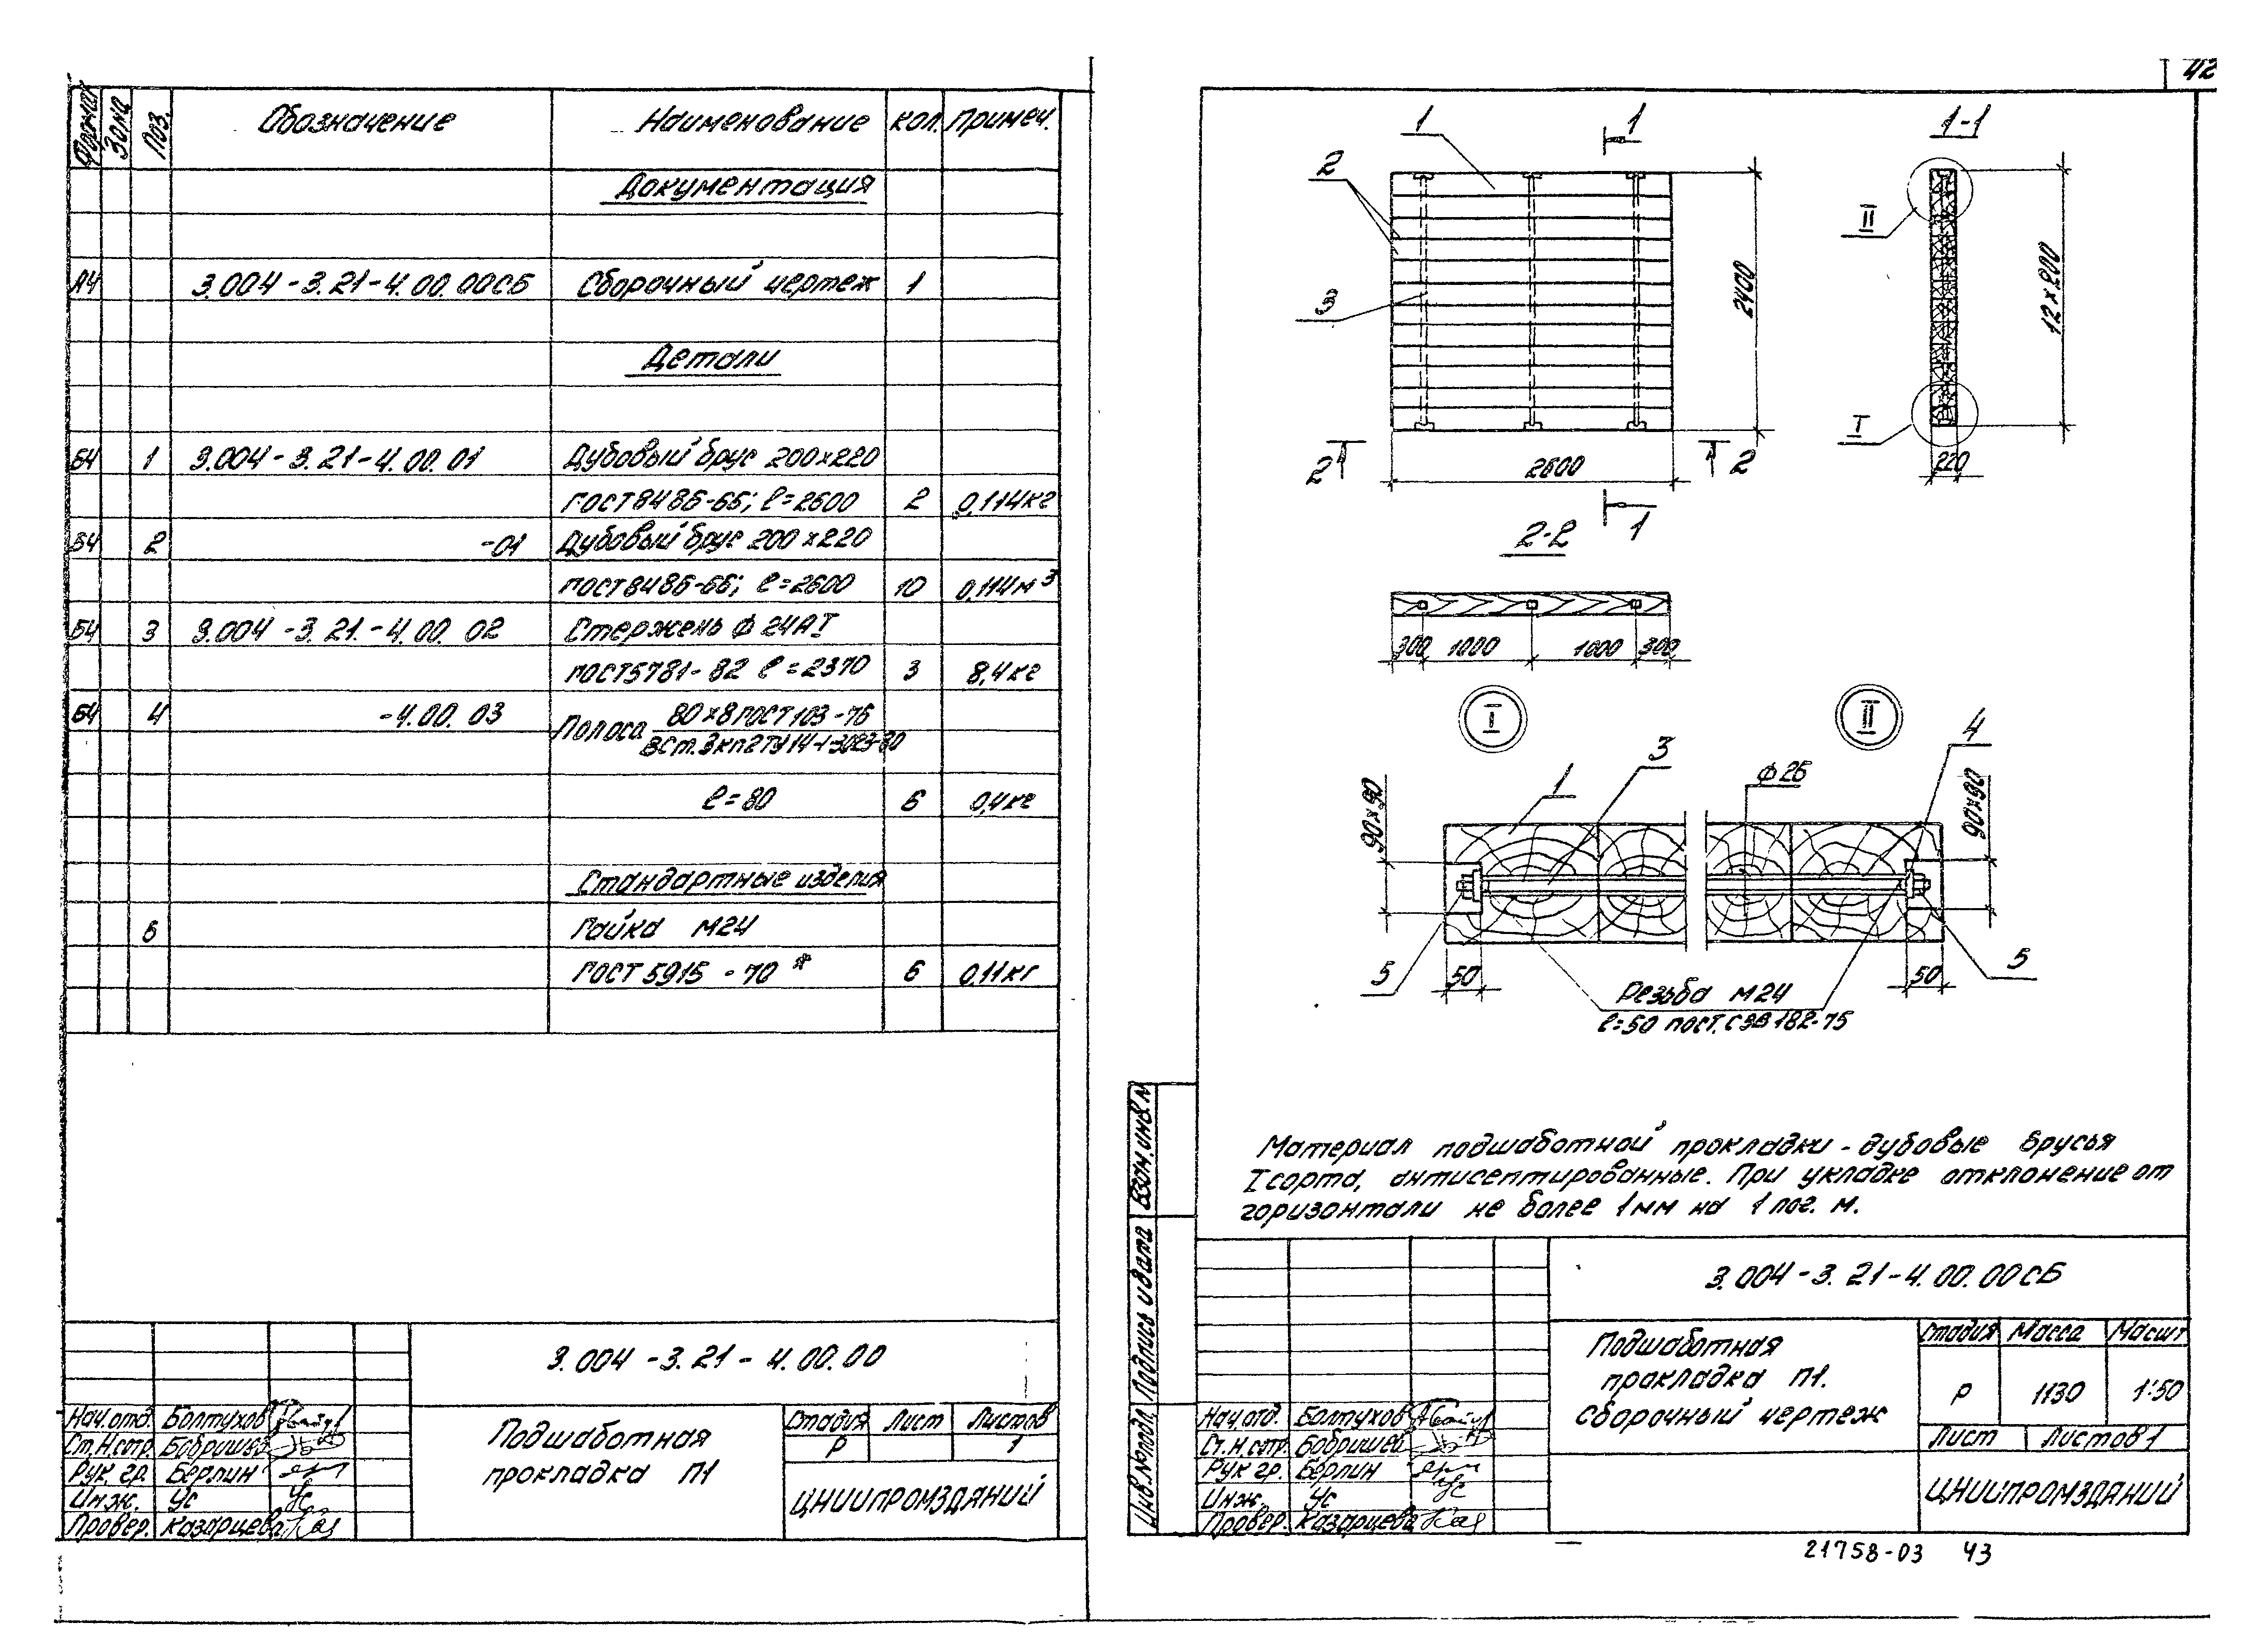 Формат Зона Поз. Обозначение Наименование Кол. Примеч.
Документация
А4 3.004-3.21-4.00.00СБ Сборочный чертеж 1
Детали
Б4 1 3.004-3.21-4.00.01 Дубовый брус 200х220
ГОСТ 8486-66; ℓ=2600 2 0,114кг
Б4 2 -01 Дубовый брус 200х220
ГОСТ 8486-66; ℓ=2600 10 0,114м³
Б4 3 3.004-3.21-4.00.02 Стержень Ф 24АI
ГОСТ 5781-82 ℓ=2370 3 8,4кг
Б4 4 -4.00.03 Полоса 80х8 ГОСТ 103-76
ВСт.3кп2 ТУ14-1-3023-80
ℓ=80 6 0,4кг
Стандартные изделия
6 Гайка М24
ГОСТ 5915-70* 6 0,11кг
3.004-3.21-4.00.00
Нач.отд. Болтухов
Ст.Н.сотр. Бобришев
Рук гр. Берлин
Инж. Ус
Провер. Казарцева
Подшаботная
прокладка П1
Стадия Лист Листов
Р 1
ЦНИИПРОМЗДАНИЙ
42
1 1 1-1
2
II
3 2400 12х200
I
2 2600 2 220
1
2-2
300 1000 1000 300
I II
4
3
1 Ф26
90х90 90х90
5 50 50 5
Резьба М24
ℓ=50 ГОСТ.СЭВ 182-75
Материал подшаботной прокладки - дубовые брусья
I сорта, антисептированные. При укладке отклонение от
горизонтали не более 1мм на 1 пог. м.
Взам.инв.N
Подпись и дата
Инв.Nподл.
3.004-3.21-4.00.00СБ
Подшаботная
прокладка П1.
Сборочный чертеж
Стадия Масса Масшт
Р 1130 1:50
Лист Листов 1
Нач.отд. Болтухов
Ст.Н.сотр. Бобришев
Рук гр. Берлин
Инж. Ус
Провер. Казарцева
ЦНИИПРОМЗДАНИЙ
21758-03 43